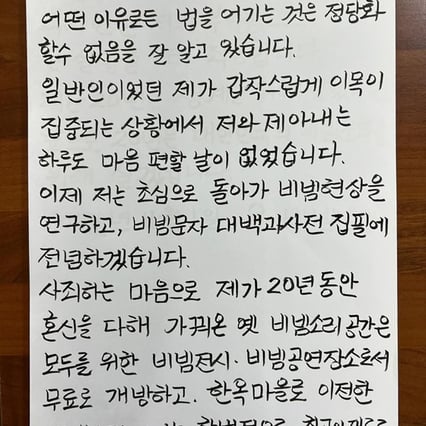 어떤 이유로든 법을 어기는 것은 정당화
할수 없음을 잘 알고 있습니다.
일반인이었던 제가 갑작스럽게 이목이
집중되는 상황에서 저와 제아내는
하루도 마음 편할 날이 없었습니다.
이제 저는 초심으로 돌아가 비빔현상을
연구하고, 비빔문자 대백과사전 집필에
전념하겠습니다.
사죄하는 마음으로 제가 20년동안
혼신을 다해 가꿔온 옛 비빔소리 공간은
모두를 위한 비빔전시·비빔공연장소로서
무료로 개방하고. 한옥마을로 이전한